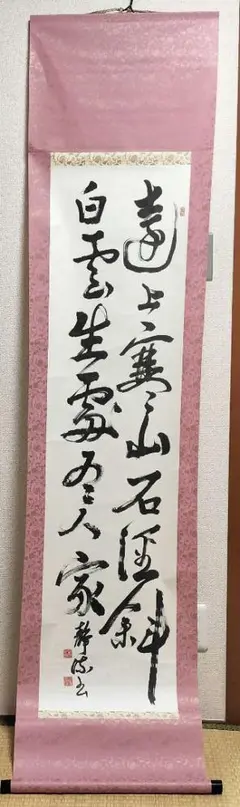 遠上寒山石径斜
白雲生處有人家
静流書